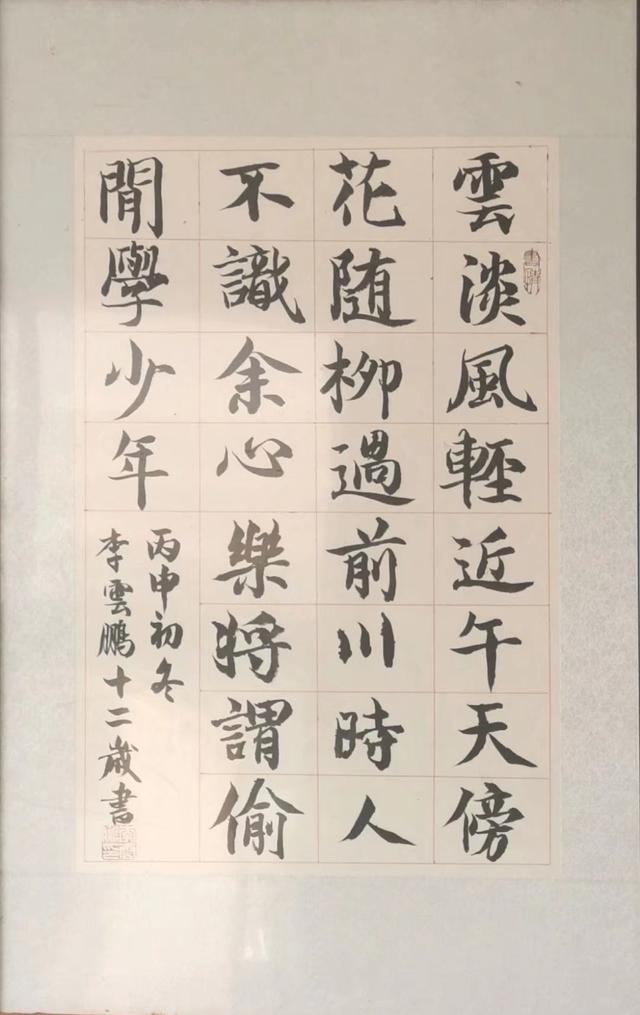 雲淡風輕近午天傍
花随柳過前川時人
不識余心樂將謂偷
閒學少年
丙申初冬
李雲鵬十二歲書